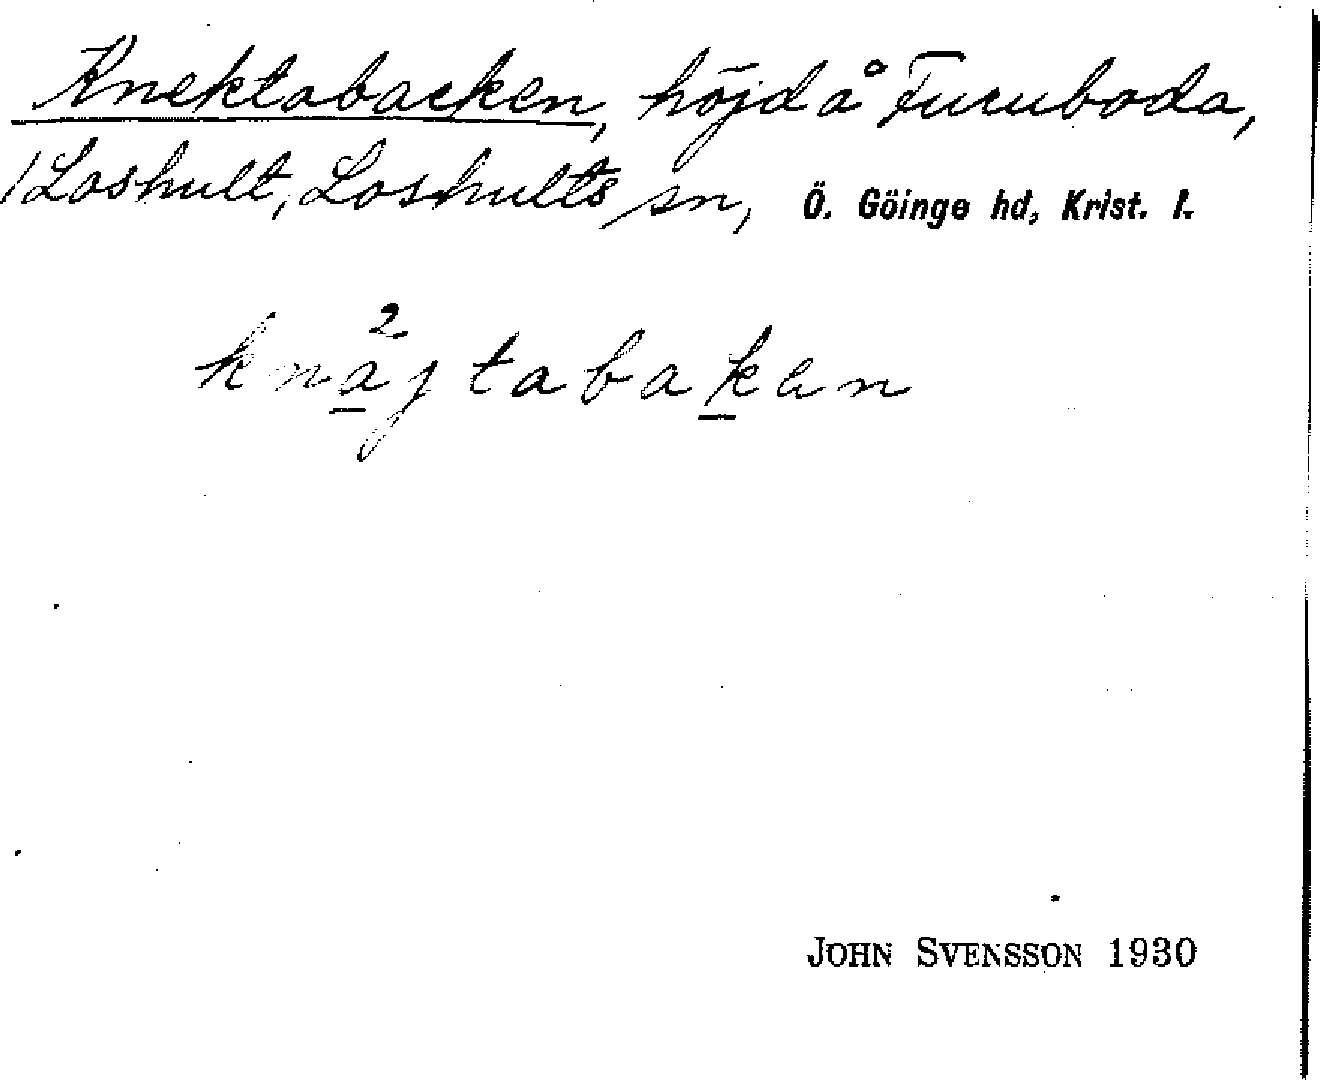 Knektabacken, höjd å Furuboda,
1 Loshult, Loshults sn, Ö. Göinge hd, Krist. l.
2
knajtabaken
JOHN SVENSSON 1930